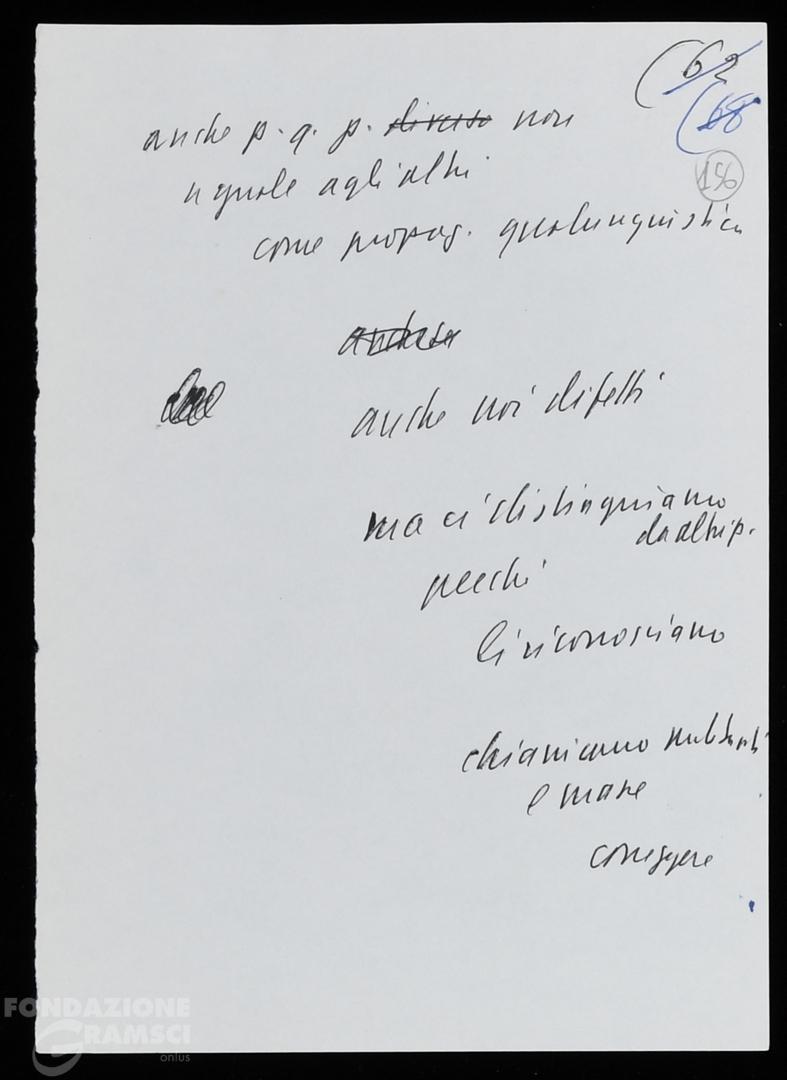 (62
(68
156
anche p. q. p. diverso non
uguale agli altri
come propag. qualunquistica
anche noi difetti
ma ci distinguiamo
da altri p.
perché
li riconosciamo
chiamiamo militanti
e masse
correggere
FONDAZIONE
GRAMSCI
onlus